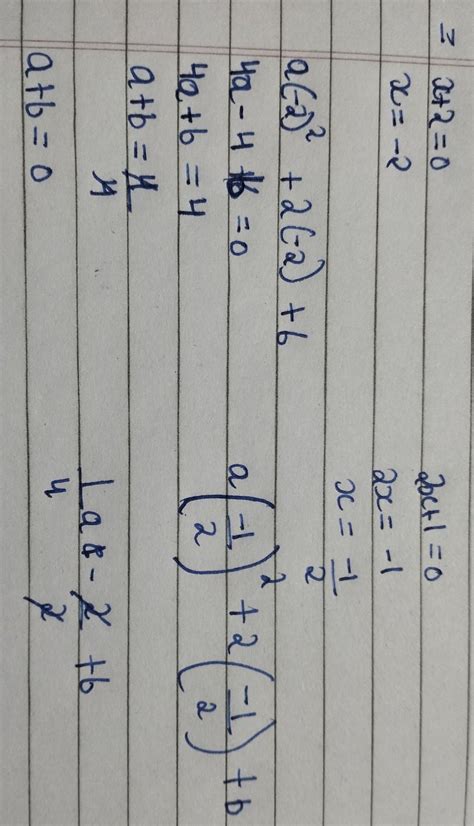 = x+2=0
x = -2
a(-2)² + 2(-2) + b
4a - 4 + b = 0
4a + b = 4
a+b = 4/4
a+b = 0
2x+1=0
2x = -1
x = -1/2
a(-1/2)² + 2(-1/2) + b
1/4 a - 2/2 + b